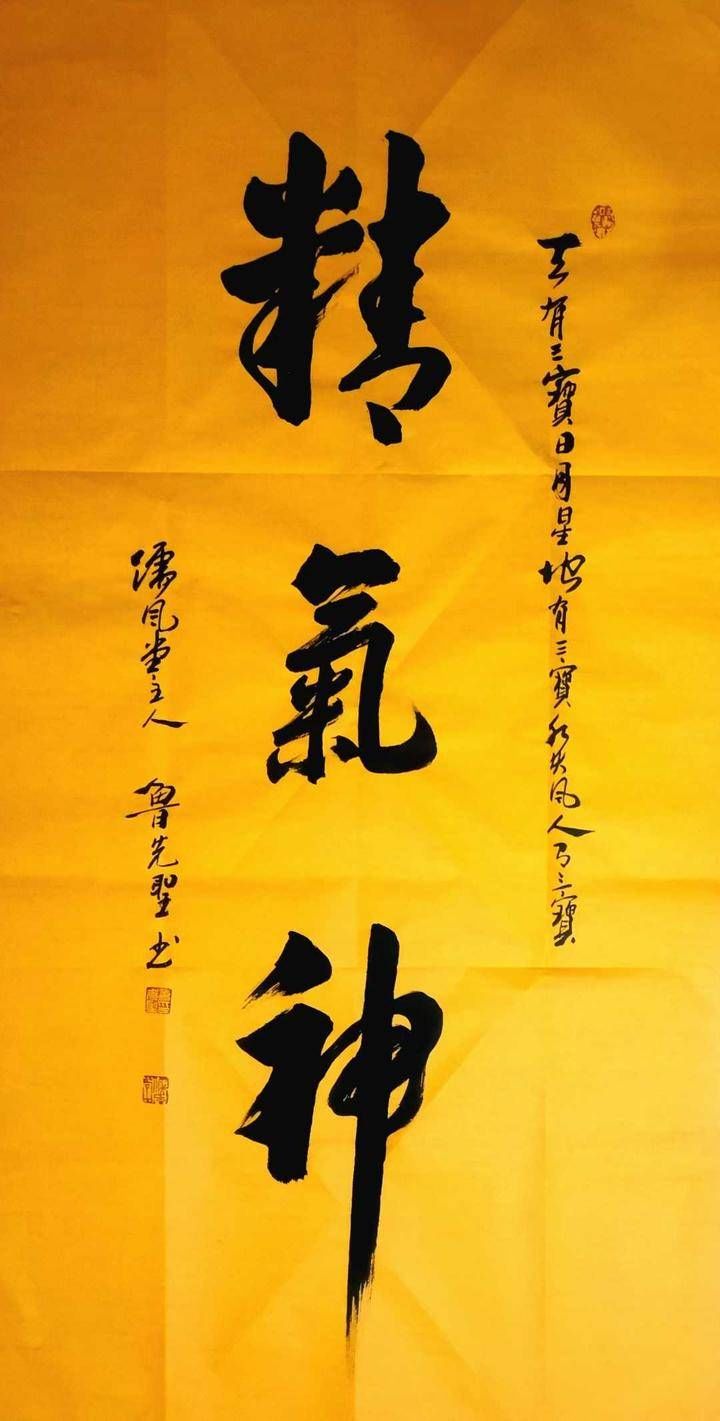 天有三寶日月星地有三寶水火風人有三寶
精氣神
儒風堂主人 魯先聖书